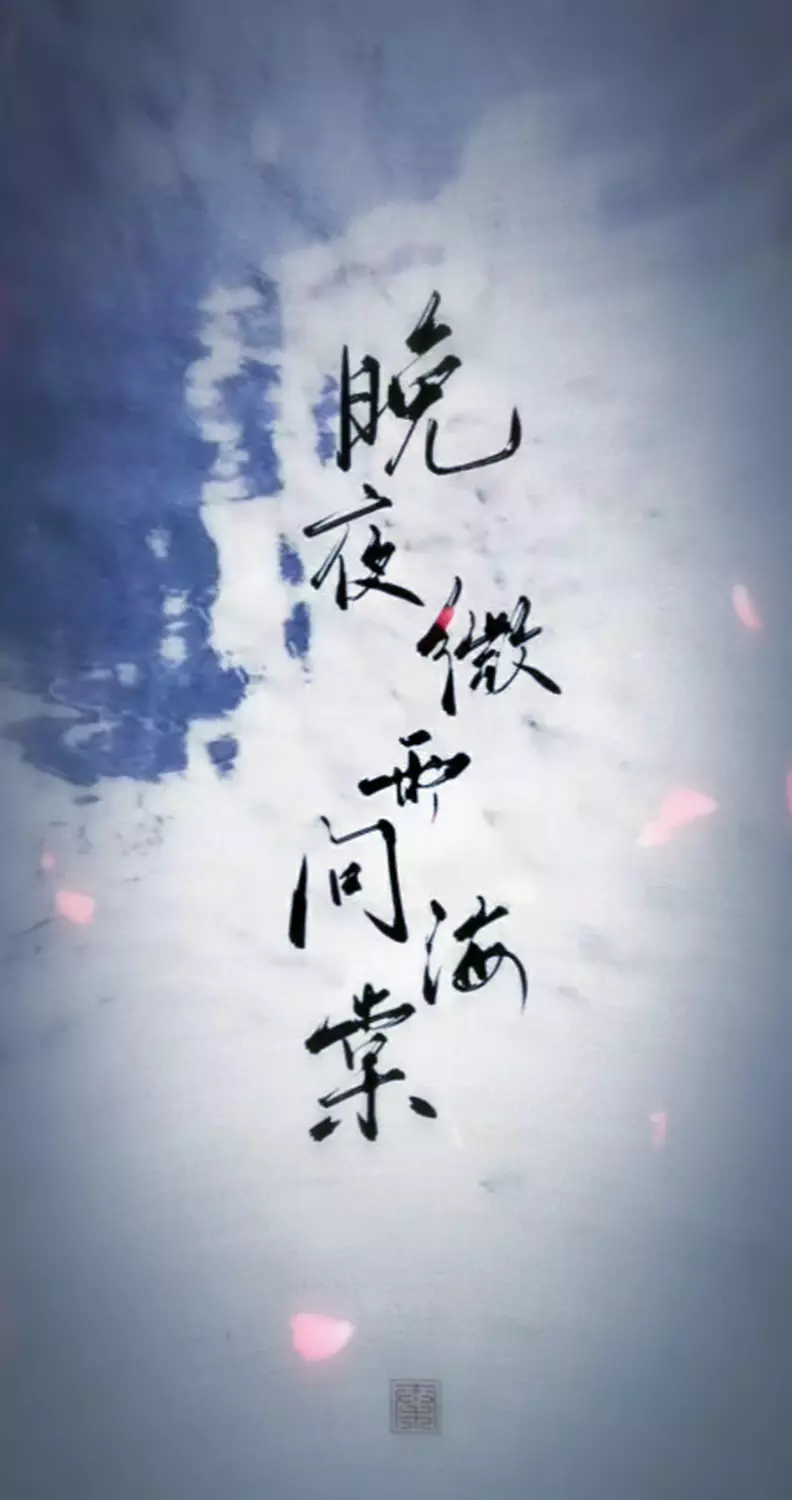 晚夜微雨问海棠